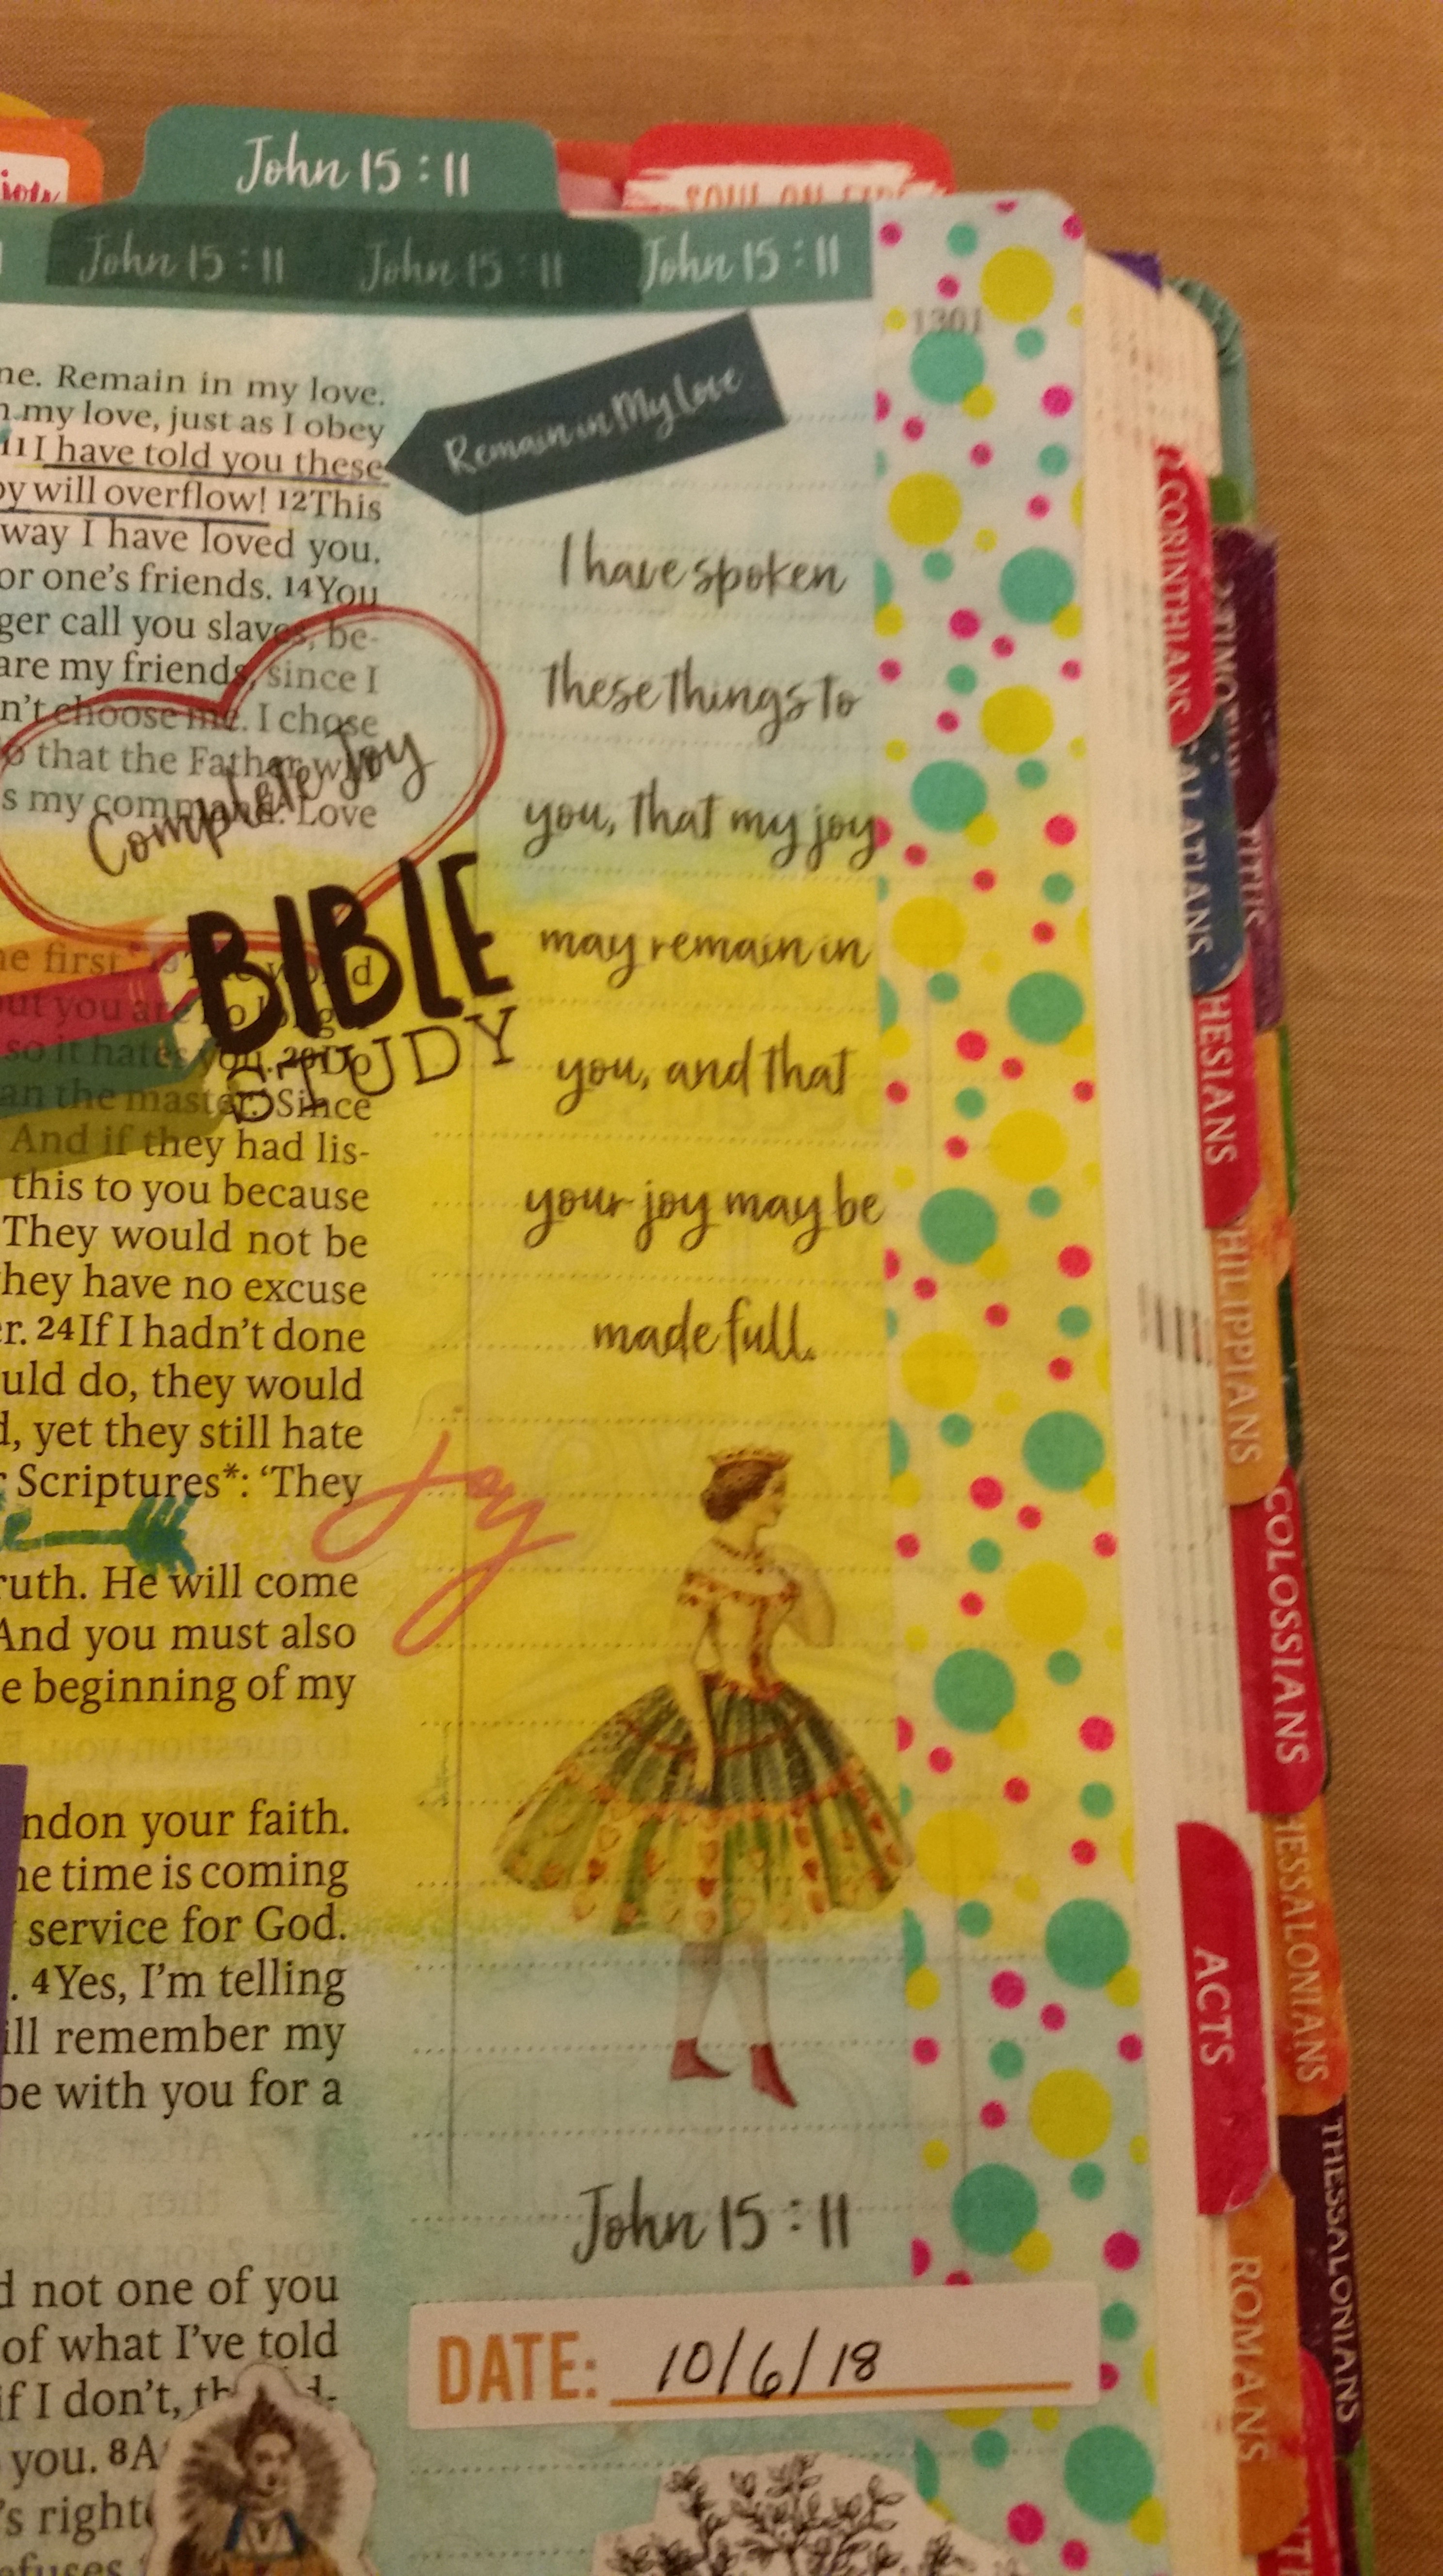 John 15 : 11
SOUL ON FIRE
John 15 : 11 John 15 : 11 John 15 : 11
1301
ne. Remain in my love.
my love, just as I obey
11 I have told you these
oy will overflow! 12This
way I have loved you.
or one's friends. 14You
ger call you slaves, be-
are my friends, since I
n't choose me. I chose
o that the Father w
s my command: Love
Complete Joy
BIBLE
STUDY
ne first. 19The world
out you are no longe
so it hates you. 20Do
an the master.' Since
And if they had lis-
this to you because
They would not be
hey have no excuse
er. 24If I hadn't done
uld do, they would
d, yet they still hate
r Scriptures*: 'They
ruth. He will come
And you must also
e beginning of my
ndon your faith.
ne time is coming
service for God.
. 4Yes, I'm telling
ill remember my
be with you for a
d not one of you
of what I've told
if I don't, th
you. 8A
's right
efuses
Remain in My Love
I have spoken
these things to
you, that my joy
may remain in
you, and that
your joy may be
made full.
joy
John 15 : 11
DATE: 10/6/18
CORINTHIANS
2 TIMO
GALATIANS
TITUS
HESIANS
HILIPPIANS
COLOSSIANS
HESSALONIANS
ACTS
THESSALONIANS
ROMANS